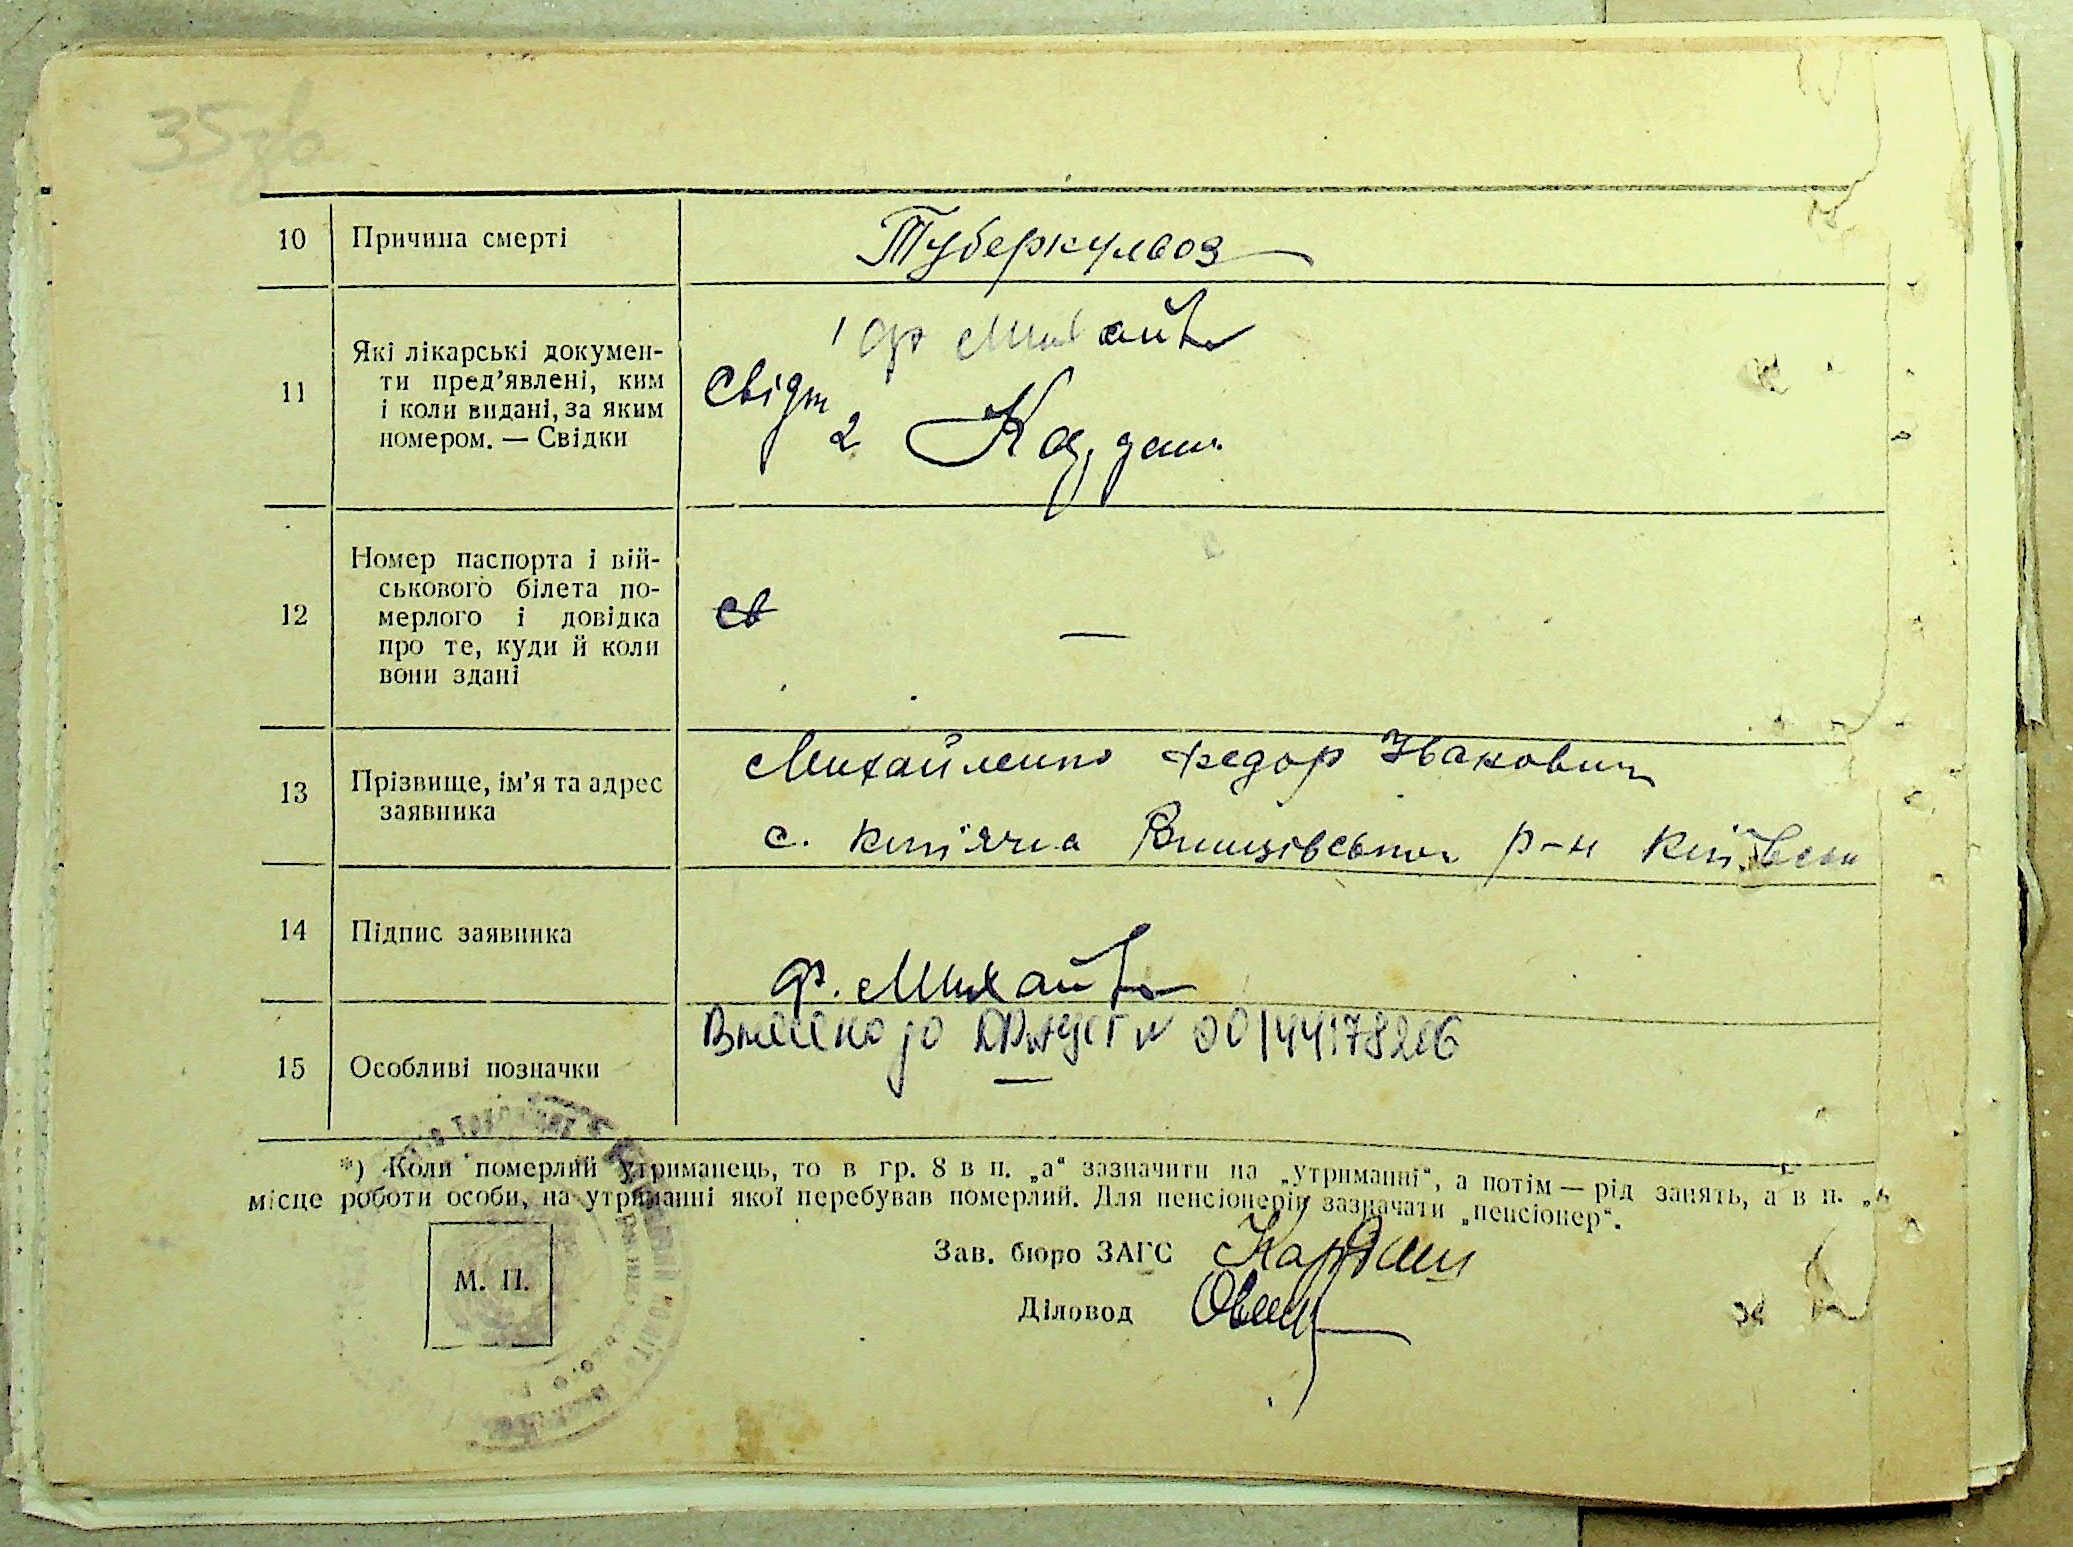 35зв
10 Причина смерті Туберкульоз
11 Які лікарські докумен-
ти пред'явлені, ким
і коли видані, за яким
номером. — Свідки
1 Ф Михай
Свідт
2 Кардаш
12 Номер паспорта і вій-
ськового білета по-
мерлого і довідка
про те, куди й коли
вони здані
св —
13 Прізвище, ім'я та адрес
заявника
Михайленко Федор
с. р-н
14 Підпис заявника
Ф. Михай
15 Особливі позначки
Внесено до ДРАЦСГ № 00144178206
—
*) Коли померлий утриманець, то в гр. 8 в п. „а“ зазначити на „утриманні“, а потім — рід занять, а в п. „
місце роботи особи, на утриманні якої перебував померлий. Для пенсіонерів зазначати „пенсіонер“.
Зав. бюро ЗАГС Кардаш
М. П.
Діловод